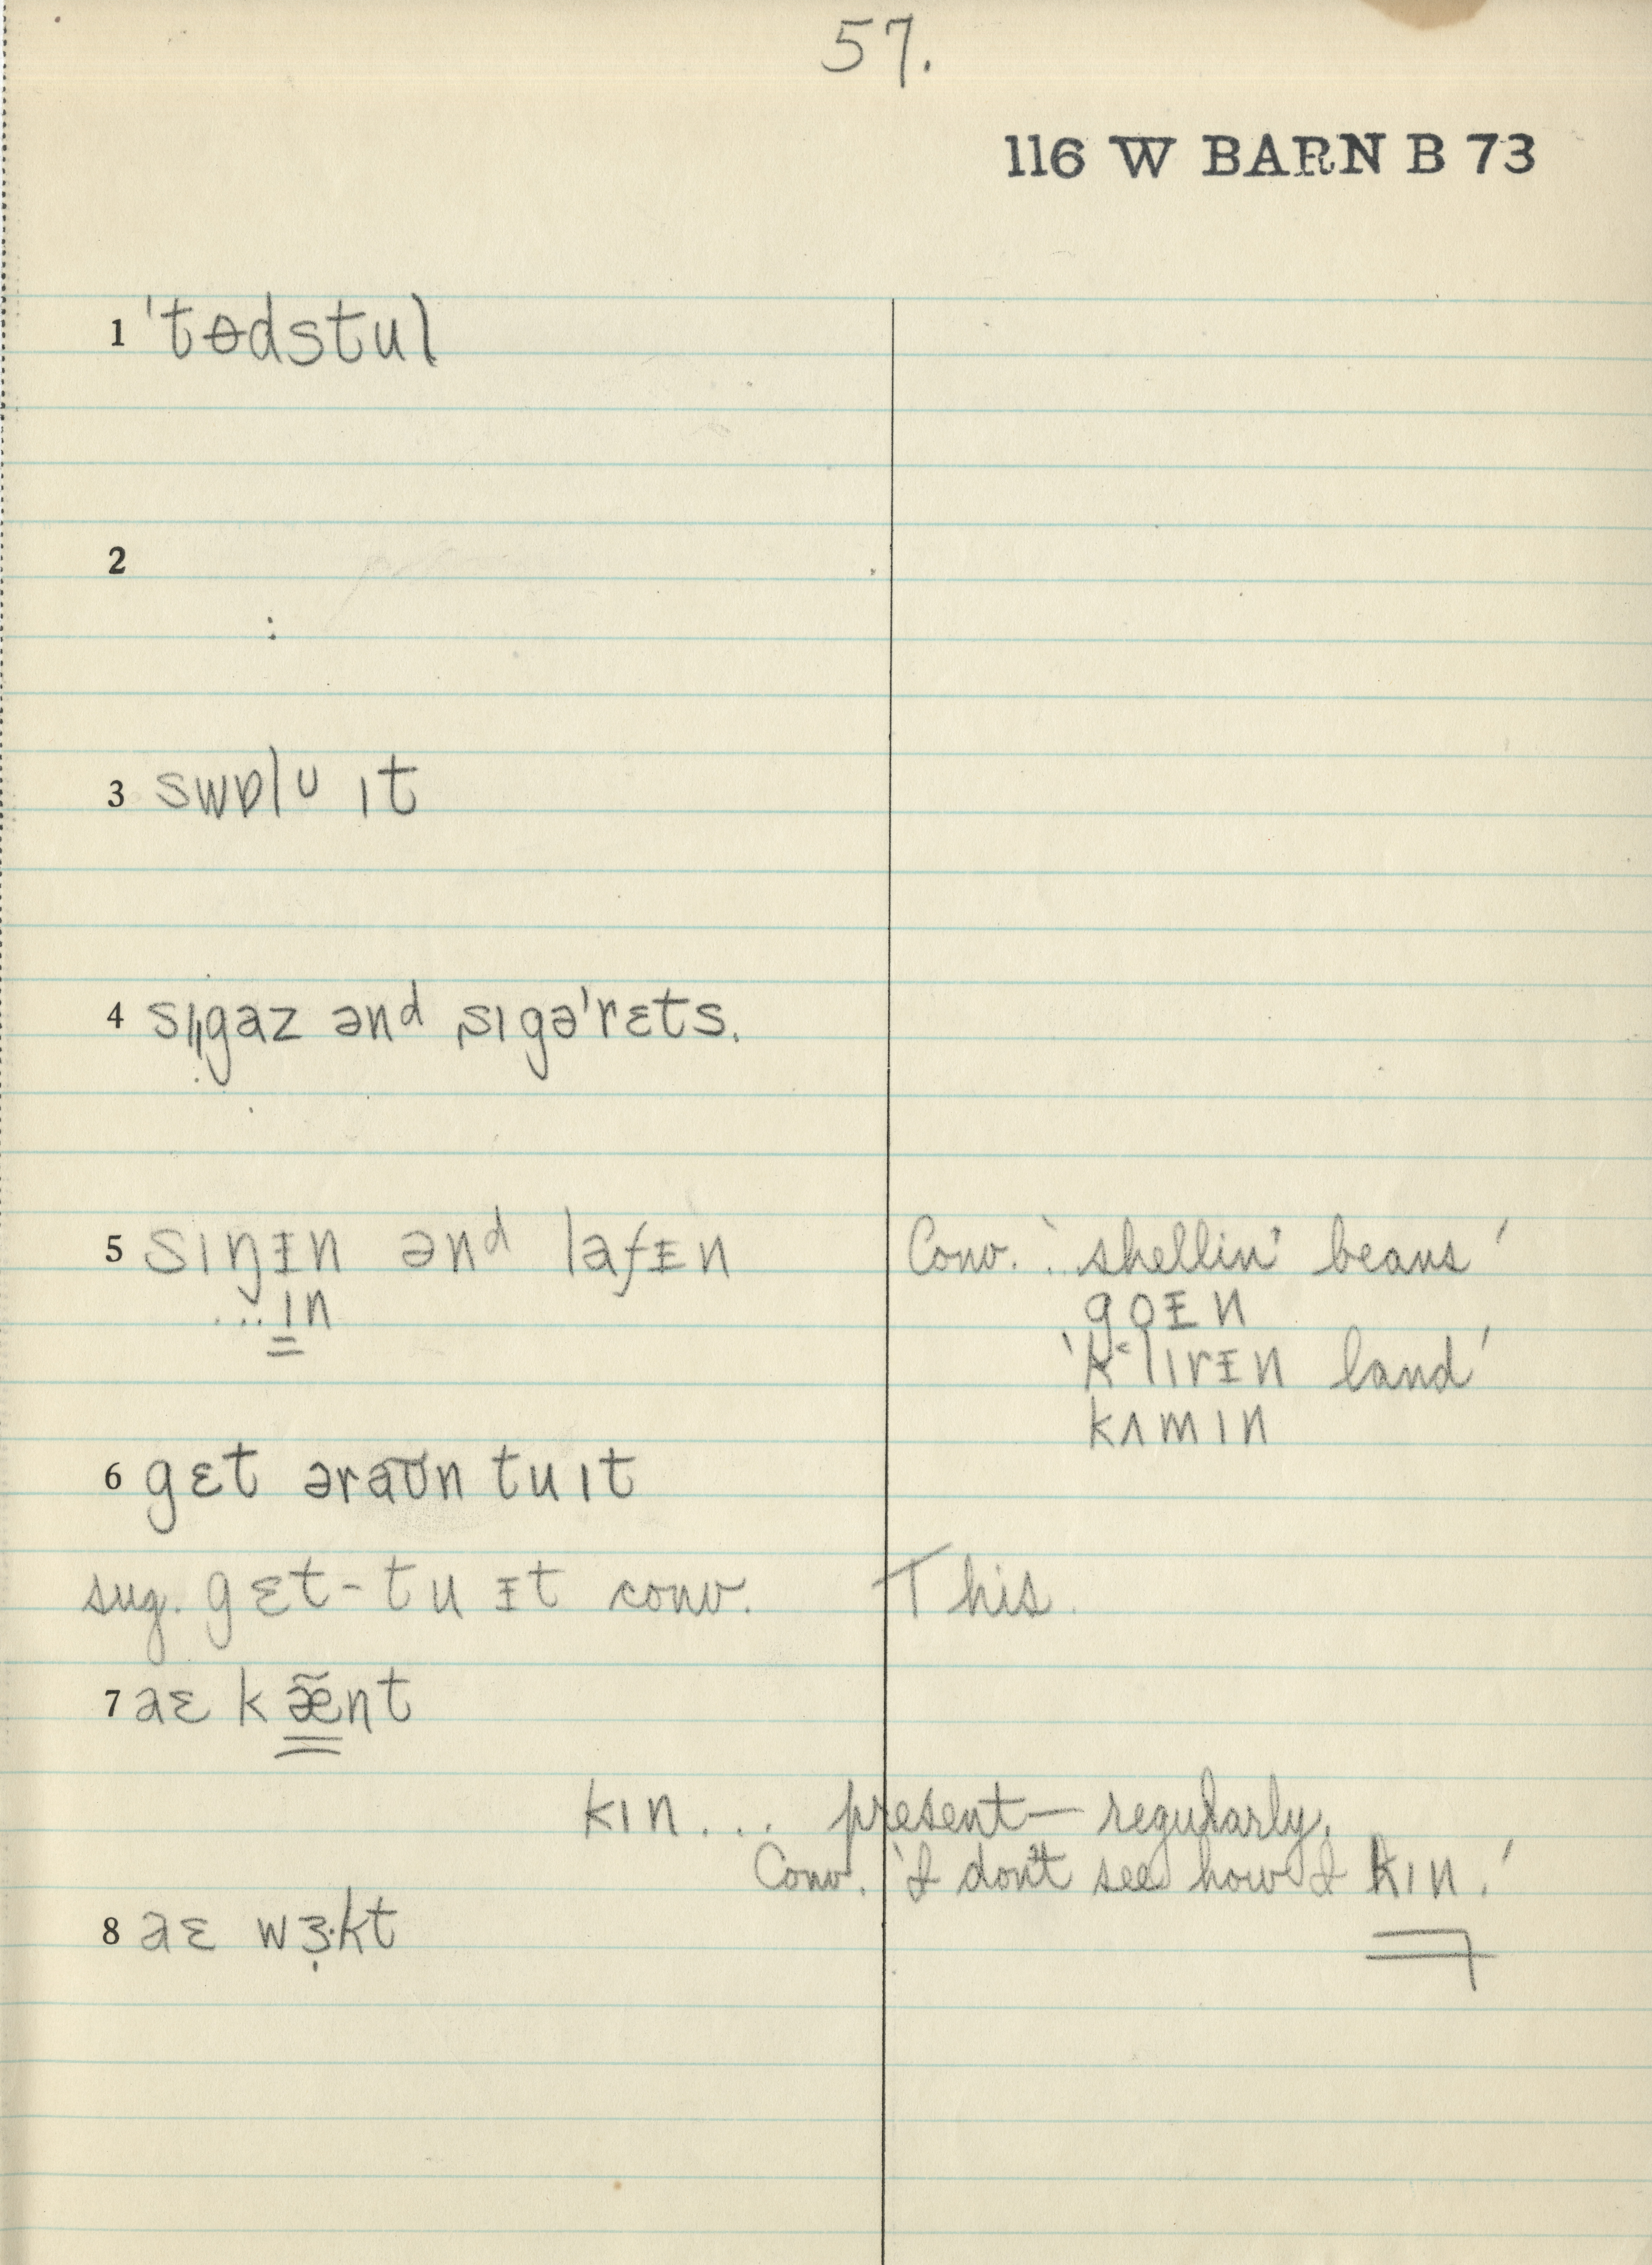 57.
116 W BARN B 73
1 ˈtɵdstul
2
3 swɒlᴜ ɪt
4 sɪˌˌgaz ənᵈ ˌsɪgəˈrɛts.
5 sɪŋᵻn ənᵈ lafᵻn Conv. : 'shellin' beans'
...ɪn goᵻn
'k˂lɪrᵻn land'
kʌmɪn
6 gɛt əraʊn tu ɪt
sug. gɛt-tu ᵻt conv. This.
7 aɛ kæ̃nt
kɪn... present — regularly.
Conv. 'I don't see how I kɪn.'
8 aɛ wɜ̣·kt